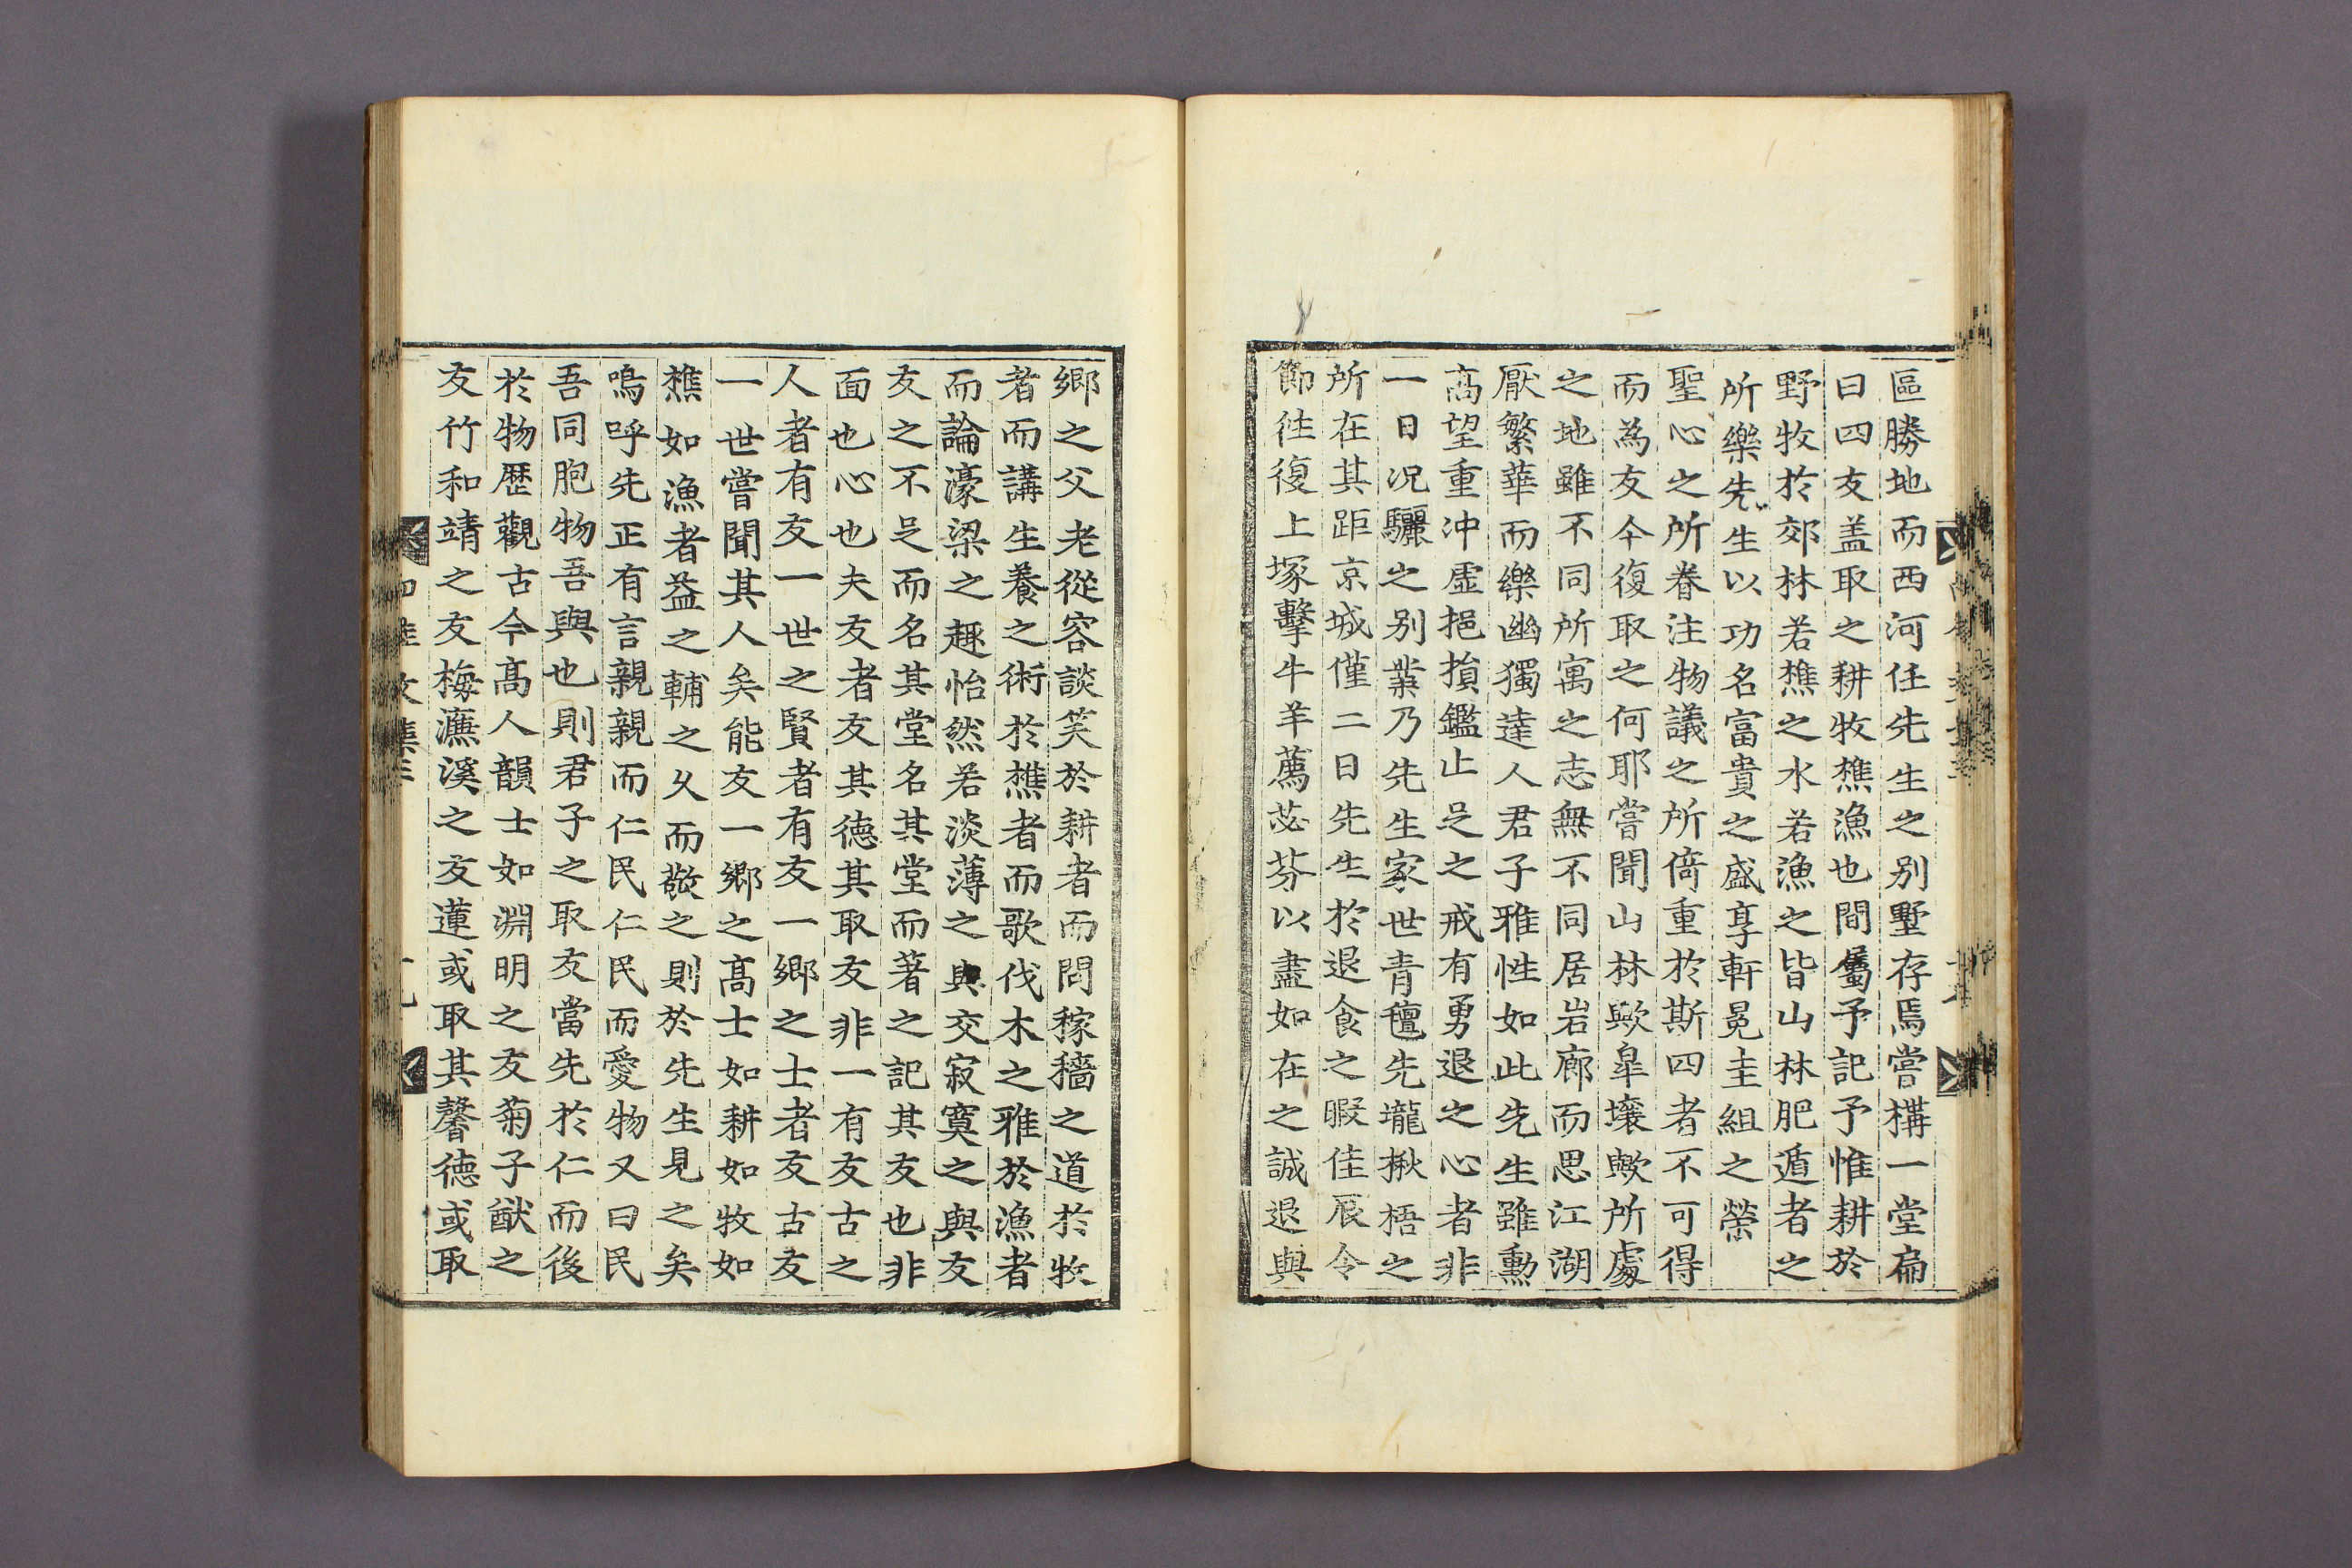 區勝地而西河任先生之别墅存焉嘗構一堂扁
曰四友盖取之耕牧樵漁也間屬予記予惟耕於
野牧於郊林若樵之水若漁之皆山林肥遁者之
所樂先生以功名富貴之盛享軒冕圭組之榮
聖心之所眷注物議之所倚重於斯四者不可得
而為友今復取之何耶嘗聞山林歟皐壤歟所處
之地雖不同所寓之志無不同居岩廊而思江湖
厭繁華而樂幽獨達人君子雅性如此先生雖勳
高望重冲虛挹損鑑止足之戒有勇退之心者非
一日况驪之别業乃先生家世青氊先壠楸梧之
所在其距京城僅二日先生於退食之暇佳辰令
節往復上塚擊牛羊薦苾芬以盡如在之誠退與
鄉之父老從容談笑於耕者而問稼穡之道於牧
者而講生養之術於樵者而歌伐木之雅於漁者
而論濠梁之趣怡然若淡薄之與交寂寞之與友
友之不足而名其堂名其堂而著之記其友也非
面也心也夫友者友其德其取友非一有友古之
人者有友一世之賢者有友一鄉之士者友古友
一世嘗聞其人矣能友一鄉之高士如耕如牧如
樵如漁者益之輔之久而敬之則於先生見之矣
嗚呼先正有言親親而仁民仁民而愛物又曰民
吾同胞物吾與也則君子之取友當先於仁而後
於物歷觀古今高人韻士如淵明之友菊子猷之
友竹和靖之友梅濂溪之友蓮或取其馨德或取